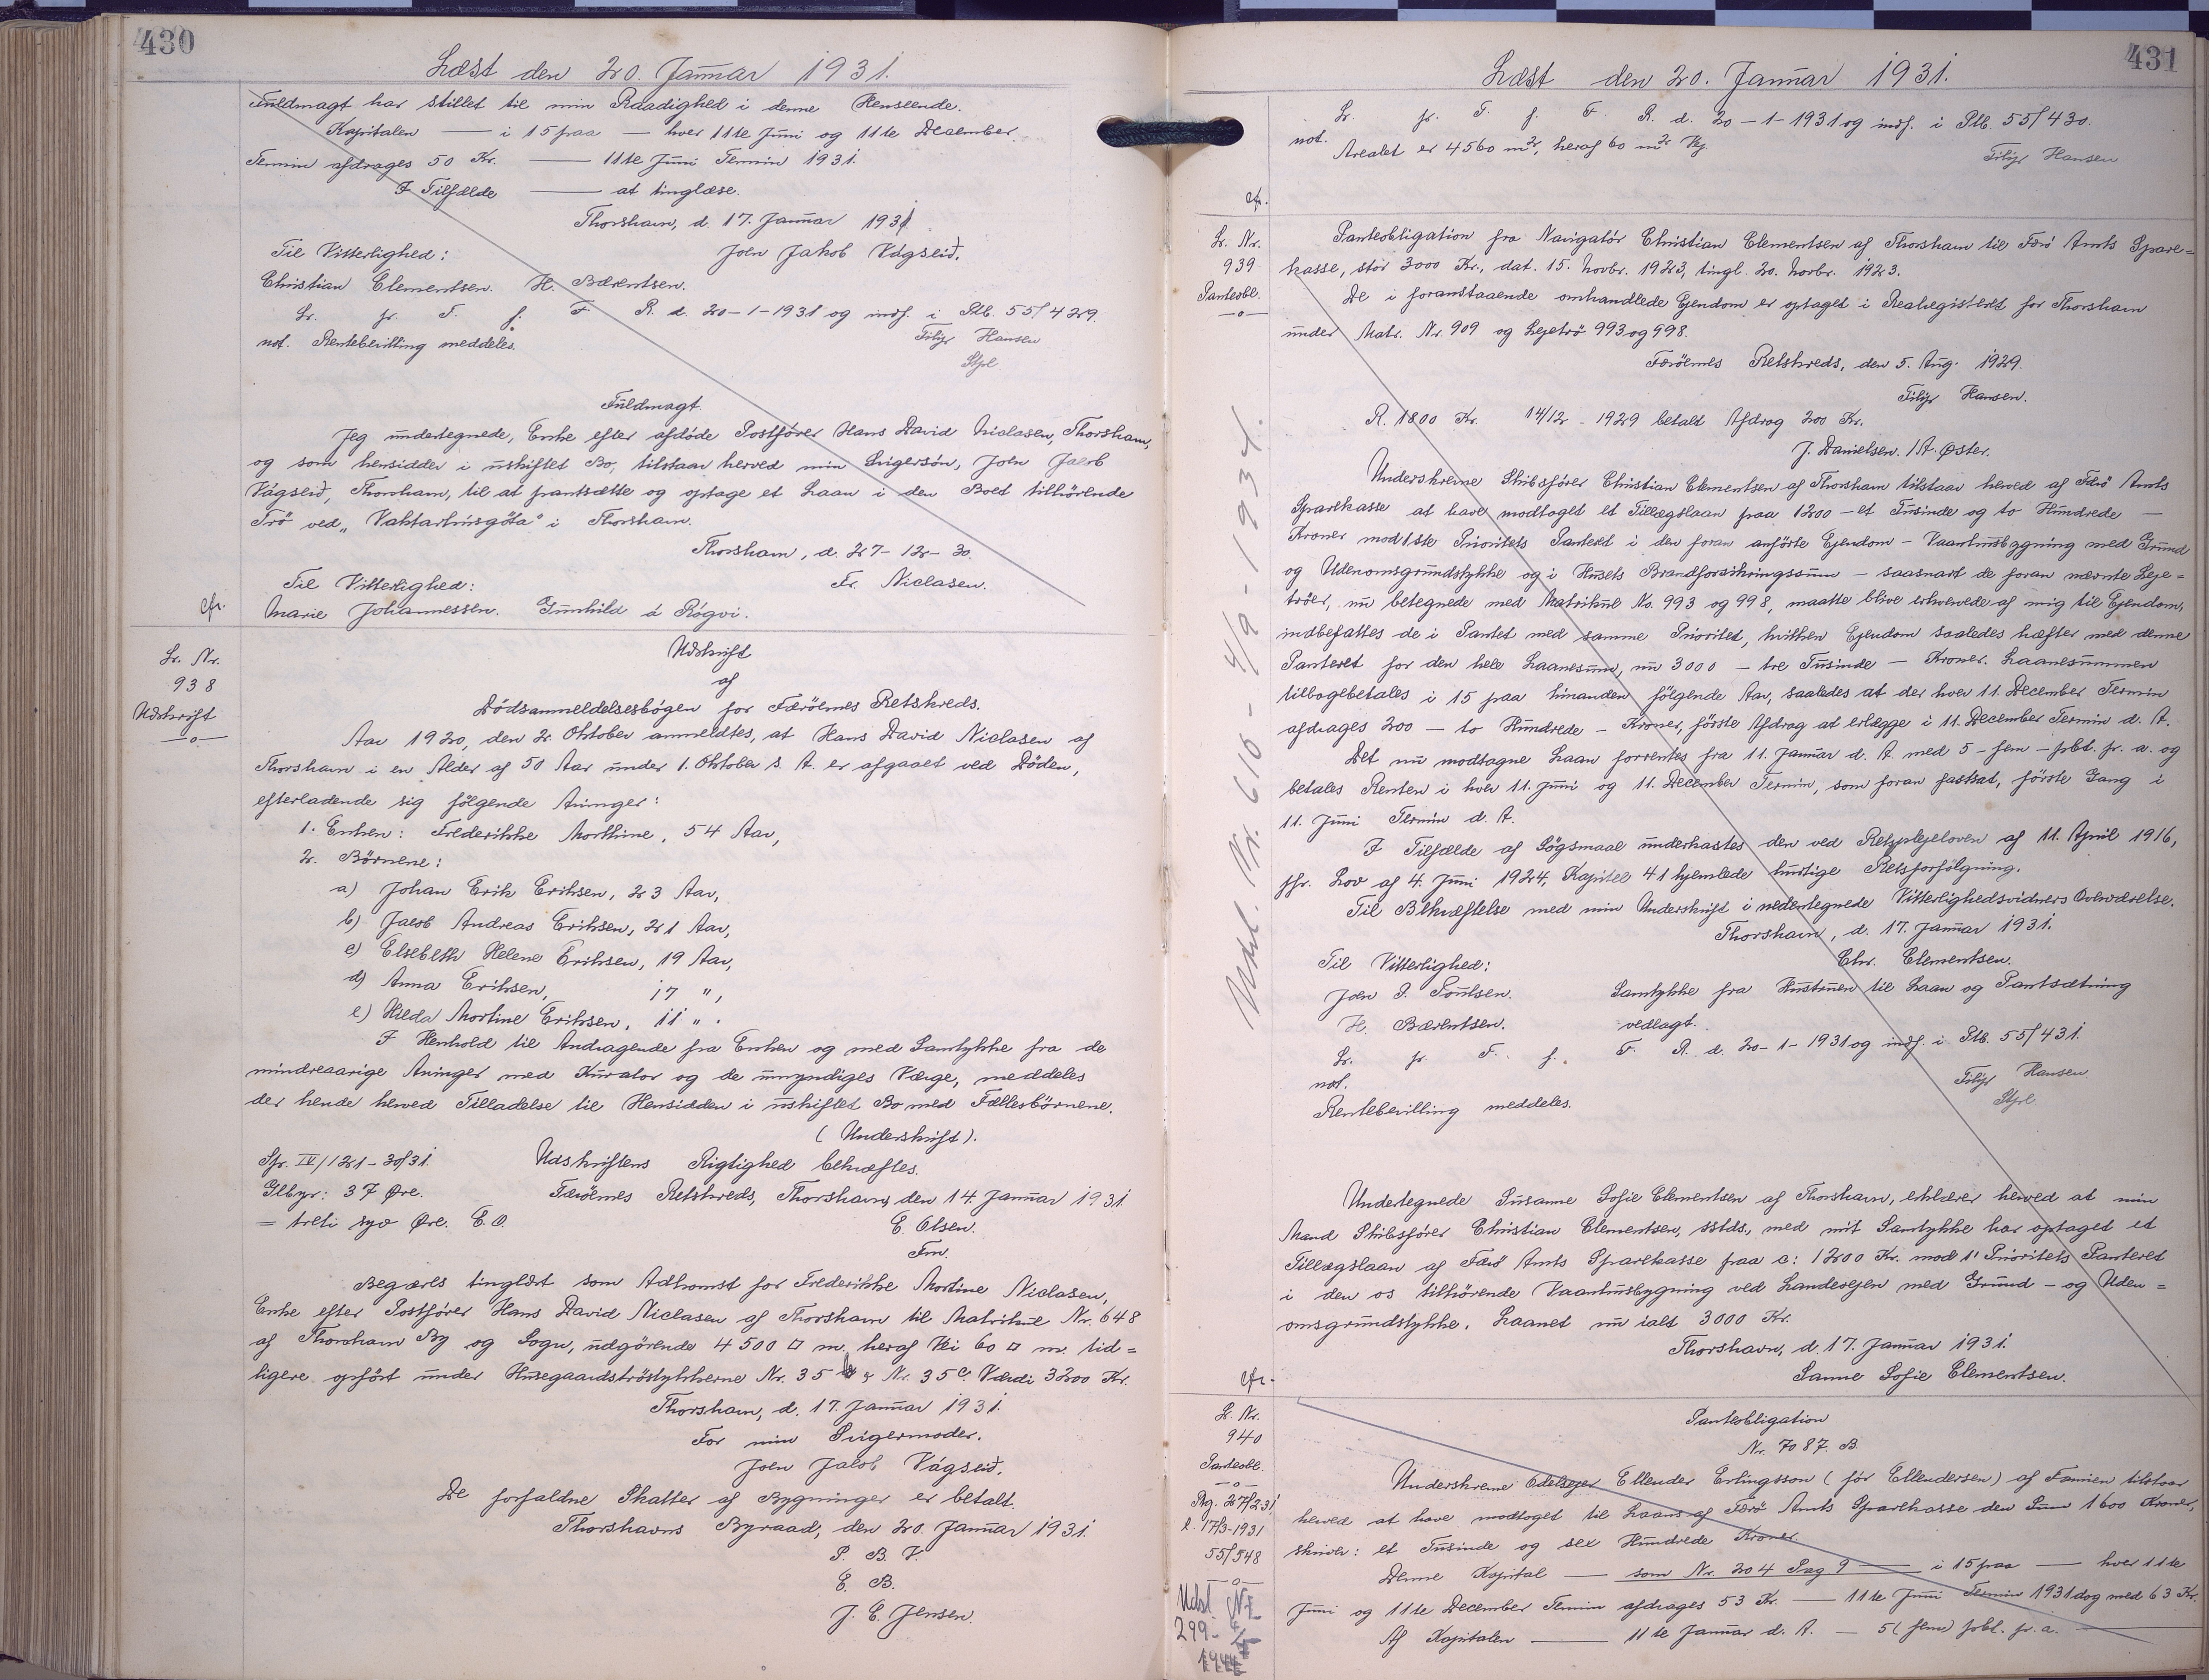 430
Læst den 20. Januar 1931.
Fuldmagt har stillet til min Raadighed i denne Henseende.
Kapitalen — i 15 paa — hver 11te Juni og 11te December
Termin afdrages 50 Kr. — 11te Juni Termin 1931.
I Tilfælde — at tinglæse.
Thorshavn, d. 17. Januar 1931
Til Vitterlighed: Joen Jakob Vágseið.
Christian Clementsen. H. Bærentsen.
Lr. fr. T. f. F. R. d. 20-1-1931 og indf. i Ptb. 55/429.
not. Rentebevilling meddeles. Filip Hansen
Stpl
Fuldmagt.
Jeg undertegnede, Enke efter afdøde Postfører Hans David Niclasen, Thorshavn,
og som hensidder i uskiftet Bo, tilstaar herved min Svigersön, Joen Jacob
Vágseið, Thorshavn, til at pantsætte og optage et Laan i den Boet tilhörende
Trö ved „Vaktarhúsgöta" i Thorshavn.
Thorshavn, d. 27-12-30.
Til Vitterlighed: Fr. Niclasen.
cfr. Marie Johannessen. Gunhild á Rógvi.
Lr. Nr.
938
Udskrift
—o—
Udskrift
af
Dödsanmeldelsesbogen for Færöernes Retskreds.
Aar 1920, den 2. Oktober anmeldtes, at Hans David Niclasen af
Thorshavn i en Alder af 50 Aar under 1. Oktober s. A. er afgaaet ved Døden,
efterladende sig følgende Arvinger:
1. Enken: Frederikke Morthine, 54 Aar,
2. Börnene:
a) Johan Erik Eriksen, 23 Aar,
b) Jacob Andreas Eriksen, 21 Aar,
c) Elsebeth Helene Eriksen, 19 Aar,
d) Anna Eriksen, 17 ",
e) Hilda Mortine Eriksen, 11 ".
I Henhold til Andragende fra Enken og med Samtykke fra de
mindreaarige Arvinger med Kurator og de umyndiges Værge, meddeles
der hende herved Tilladelse til Hensidden i uskiftet Bo med Fællesbörnene.
(Underskrift).
Sfr. IV/121-30/31. Udskriftens Rigtighed bekræftes.
Glbyr: 37 Øre. Færöernes Retskreds, Thorshavn, den 14. Januar 1931
= treti syv Øre. E.O. E. Olsen.
Fm.
Begæres tinglæst som Adkomst for Frederikke Mortine Niclasen,
Enke efter Postfører Hans David Niclasen af Thorshavn til Matrikul Nr. 648
af Thorshavn By og Sogn, udgörende 4500 □ m. heraf Vei 60 □ m. tid=
ligere opført under Husegaardströstykkerne Nr. 35 & Nr. 35c. Værdi 3200 Kr.
Thorshavn, d. 17. Januar 1931.
For min Svigermoder.
Joen Jacob Vágseið.
De forfaldne Skatter af Bygninger er betalt.
Thorshavns Byraad, den 20. Januar 1931.
P. B. V.
E. B.
J. C. Jensen.
431
Læst den 20. Januar 1931.
Lr. fr. T. f. F. R. d. 20-1-1931 og indf. i Ptb. 55/430.
not. Arealet er 4560 m², heraf 60 m² Vej
Filip Hansen
cfr.
Lr. Nr.
939
Panteobl.
—o—
Panteobligation fra Navigatör Christian Clementsen af Thorshavn til Færö Amts Spare=
kasse, stor 3000 Kr., dat. 15. Novbr. 1923, tingl. 20. Novbr. 1923.
De i foranstaaende omhandlede Ejendom er optaget i Realregisteret for Thorshavn
under Matr. Nr. 909 og Lejetrö 993 og 998.
Færöernes Retskreds, den 5. Aug. 1929.
Filip Hansen.
R. 1800 Kr. 14/12 - 1929 betalt Afdrag 200 Kr.
J. Danielsen. /A. Øster.
Underskrevne Skibsfører Christian Clementsen af Thorshavn tilstaar herved af Færö Amts
Sparekasse at have modtaget et Tillægslaan paa 1200 — et Tusinde og to Hundrede —
Kroner mod 1ste Prioritets Panteret i den foran anførte Ejendom — Vaaningsbygning med Grund
og Udenomsgrundstykke og i Husets Brandforsikringssum — saasnart de foran nævnte Leje=
tröer, nu betegnede med Matrikul No. 993 og 998, maatte blive erhvervede af mig til Ejendom,
indbefattes de i Pantet med samme Prioritet, hvilken Ejendom saaledes hæfter med denne
Panteret for den hele Laanesum, nu 3000 — tre Tusinde — Kroner. Laanesummen
tilbagebetales i 15 paa hinanden följende Aar, saaledes at der hver 11. December Termin
afdrages 200 — to Hundrede — Kroner, förste Afdrag at erlægge i 11. December Termin d. A.
Det nu modtagne Laan forrentes fra 11. Januar d. A. med 5 — fem — pCt. pr. a. og
betales Renten i hver 11. Juni og 11. December Termin, som foran fastsat, förste Gang i
11. Juni Termin d. A.
I Tilfælde af Sögsmaal underkastes den ved Retsplejeloven af 11. April 1916,
jfr. Lov af 4. Juni 1924, Kapitel 41 hjemlede hurtige Retsforfölgning.
Til Bekræftelse med min Underskrift i nedentegnede Vitterlighedsvidners Overværelse.
Thorshavn, d. 17. Januar 1931.
Til Vitterlighed: Chr. Clementsen.
Joen P. Poulsen. Samtykke fra Hustruen til Laan og Pantsætning
H. Bærentsen. vedlagt.
Lr. fr. F. f. F. R. d. 20-1-1931 og indf. i Ptb. 55/431.
not. Filip Hansen
Rentebevilling meddeles. Stpl
Udsl. Nr. 616 - 4/9 - 1934.
Undertegnede Susanne Sofie Clementsen af Thorshavn, erklærer herved at min
Mand Skibsfører Christian Clementsen, sstds., med mit Samtykke har optaget et
Tillægslaan af Færö Amts Sparekasse paa c: 1200 Kr. mod 1' Prioritets Panteret
i den os tilhörende Vaaningsbygning ved Landevejen med Grund- og Uden=
omsgrundstykke. Laanet nu ialt 3000 Kr.
Thorshavn, d. 17. Januar 1931.
cfr. Sanne Sofie Clementsen.
Lr. Nr.
940
Panteobl.
—o—
Rg. 27/2 31
l. 17/3-1931
55/548
—o—
Udsl. Nr.
299-
1944
Panteobligation
Nr. 7087. B.
Underskrevne Odelsejer Ellender Erlingsson (för Ellendersen) af Famien tilstaar
herved at have modtaget til Laans af Færö Amts Sparekasse den Sum 1600 Kroner,
skriver: et Tusinde og sex Hundrede Kroner.
Denne Kapital — som Nr. 204 Pag 9 — i 15 paa — hver 11te
Juni og 11te December Termin afdrages 53 Kr. — 11te Juni Termin 1931 dog med 63 Kr.
Af Kapitalen — 11te Januar d. A. — 5 (fem) pCt. pr. a. —